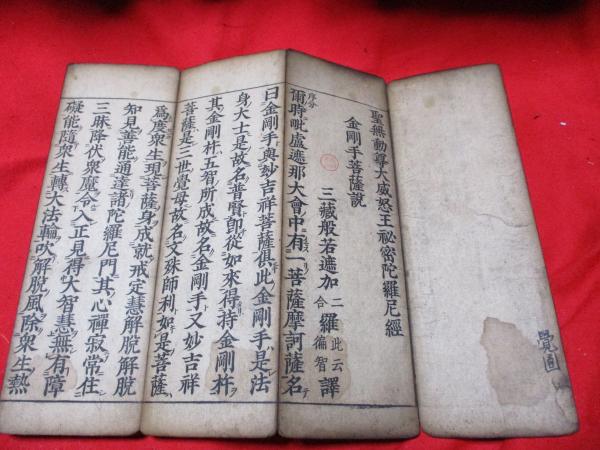 聖無動尊大威怒王祕密陀羅尼經
金剛手菩薩說
三藏般若遮加二合羅此云徧智譯
序分
爾時毗盧遮那大會中有一菩薩摩訶薩名
曰金剛手與妙吉祥菩薩俱此金剛手是法
身大士是故名普賢卽從如來得持金剛杵
其金剛杵五智所成故名金剛手又妙吉祥
菩薩是三世覺母故名文殊師利如是菩薩
爲度衆生現菩薩身成就戒定慧解脫解脫
知見善能通達諸陀羅尼門其心禪寂常住
三昧降伏衆魔令入正見得大智慧無有障
礙能隨衆生轉大法輪吹解脫風除衆生熱